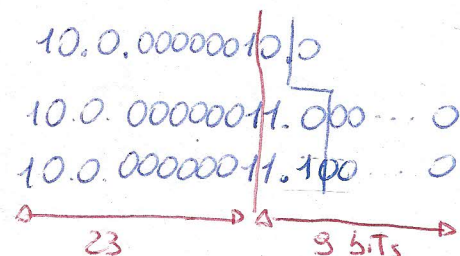 10.0.00000010.0
10.0.00000011.000....0
10.0.00000011.100....0
23 9 bits